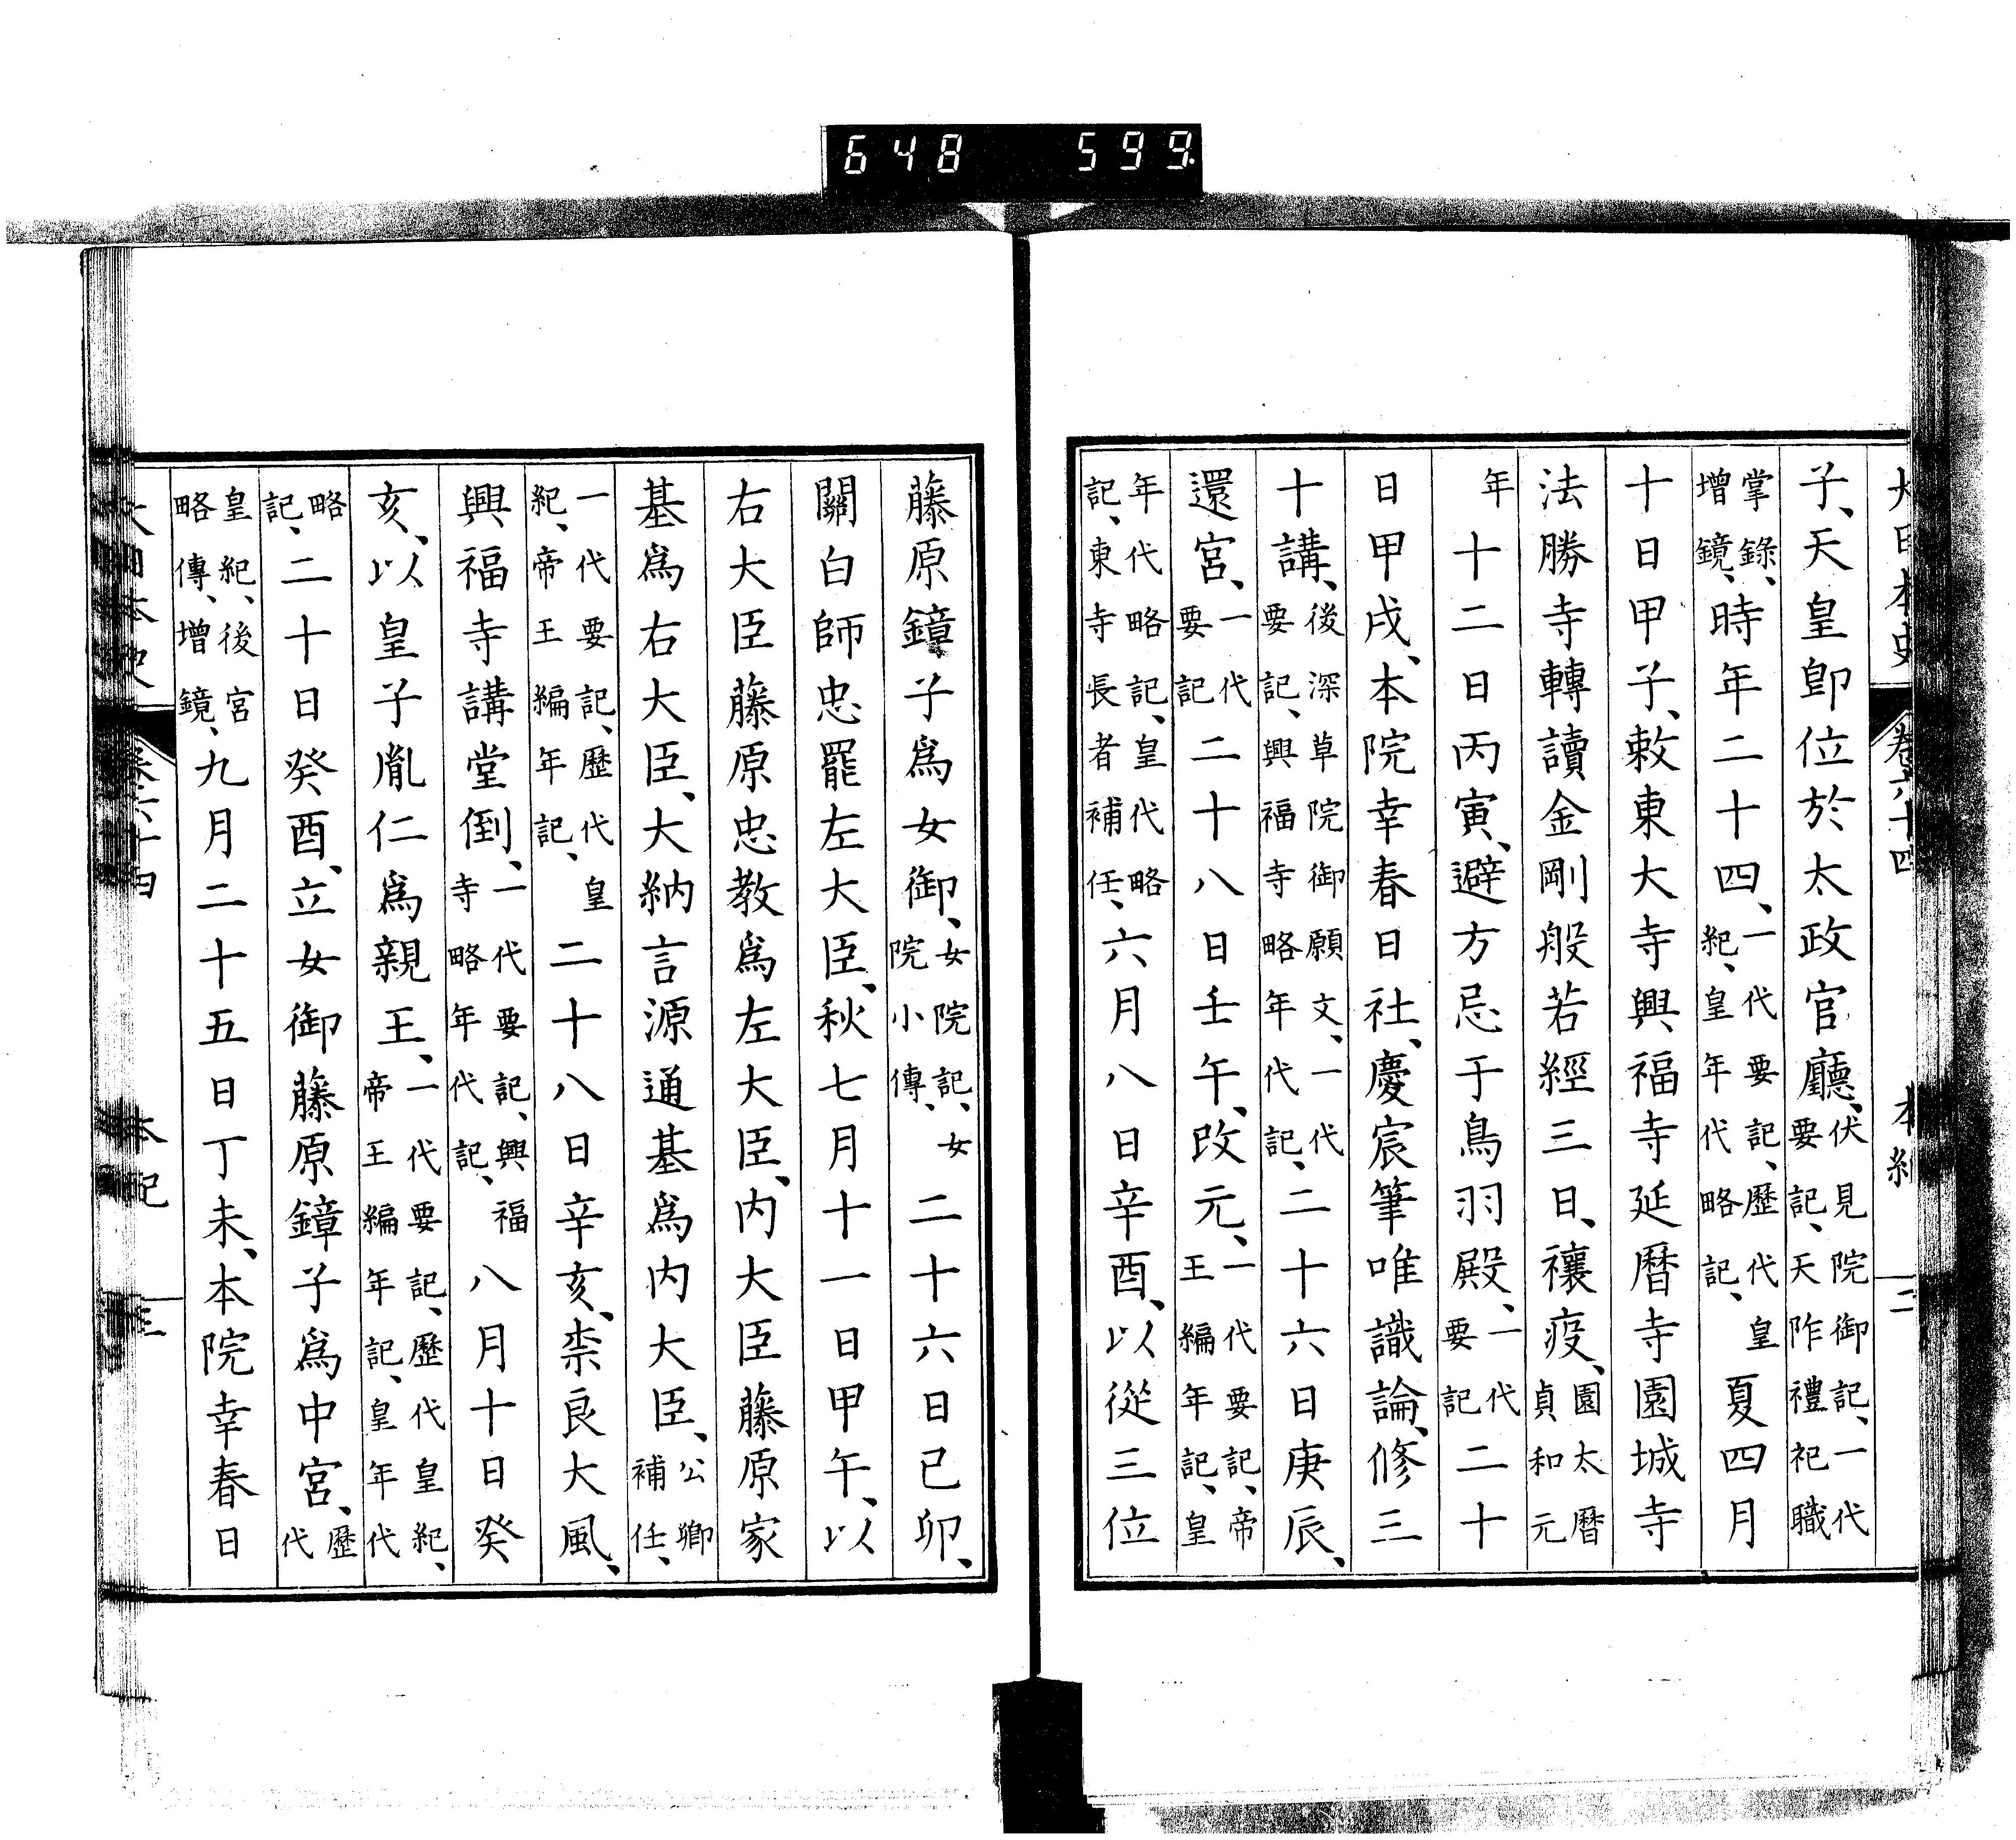 大日本史 卷六十四 本紀 二
子、天皇卽位於太政官廳、伏見院御記、一代要記、天祚禮祀職
掌錄、增鏡、時年二十四、一代要記、歷代皇紀、皇年代略記、夏四月
十日甲子、敕東大寺興福寺延曆寺園城寺
法勝寺轉讀金剛般若經三日、禳疫、園太曆貞和元
年十二日丙寅、避方忌于鳥羽殿、一代要記二十
日甲戌、本院幸春日社、慶宸筆唯識論、修三
十講、後深草院御願文、一代要記、興福寺略年代記、二十六日庚辰、
還宮、一代要記二十八日壬午、改元、一代要記、帝王編年記、皇
年代略記、皇代略記、東寺長者補任、六月八日辛酉、以從三位
藤原鏱子爲女御、女院記、女院小傳、二十六日己卯、
關白師忠罷左大臣、秋七月十一日甲午、以
右大臣藤原忠教爲左大臣、内大臣藤原家
基爲右大臣、大納言源通基爲内大臣、公卿補任、
一代要記、歷代皇紀、帝王編年記、二十八日辛亥、柰良大風、
興福寺講堂倒、一代要記、興福寺略年代記、八月十日癸
亥、以皇子胤仁爲親王、一代要記、歷代皇紀、帝王編年記、皇年代
略記、二十日癸酉、立女御藤原鏱子爲中宮、歷代
皇紀、後宮略傳、增鏡、九月二十五日丁未、本院幸春日
大日本史 卷六十四 本紀 三
648 599